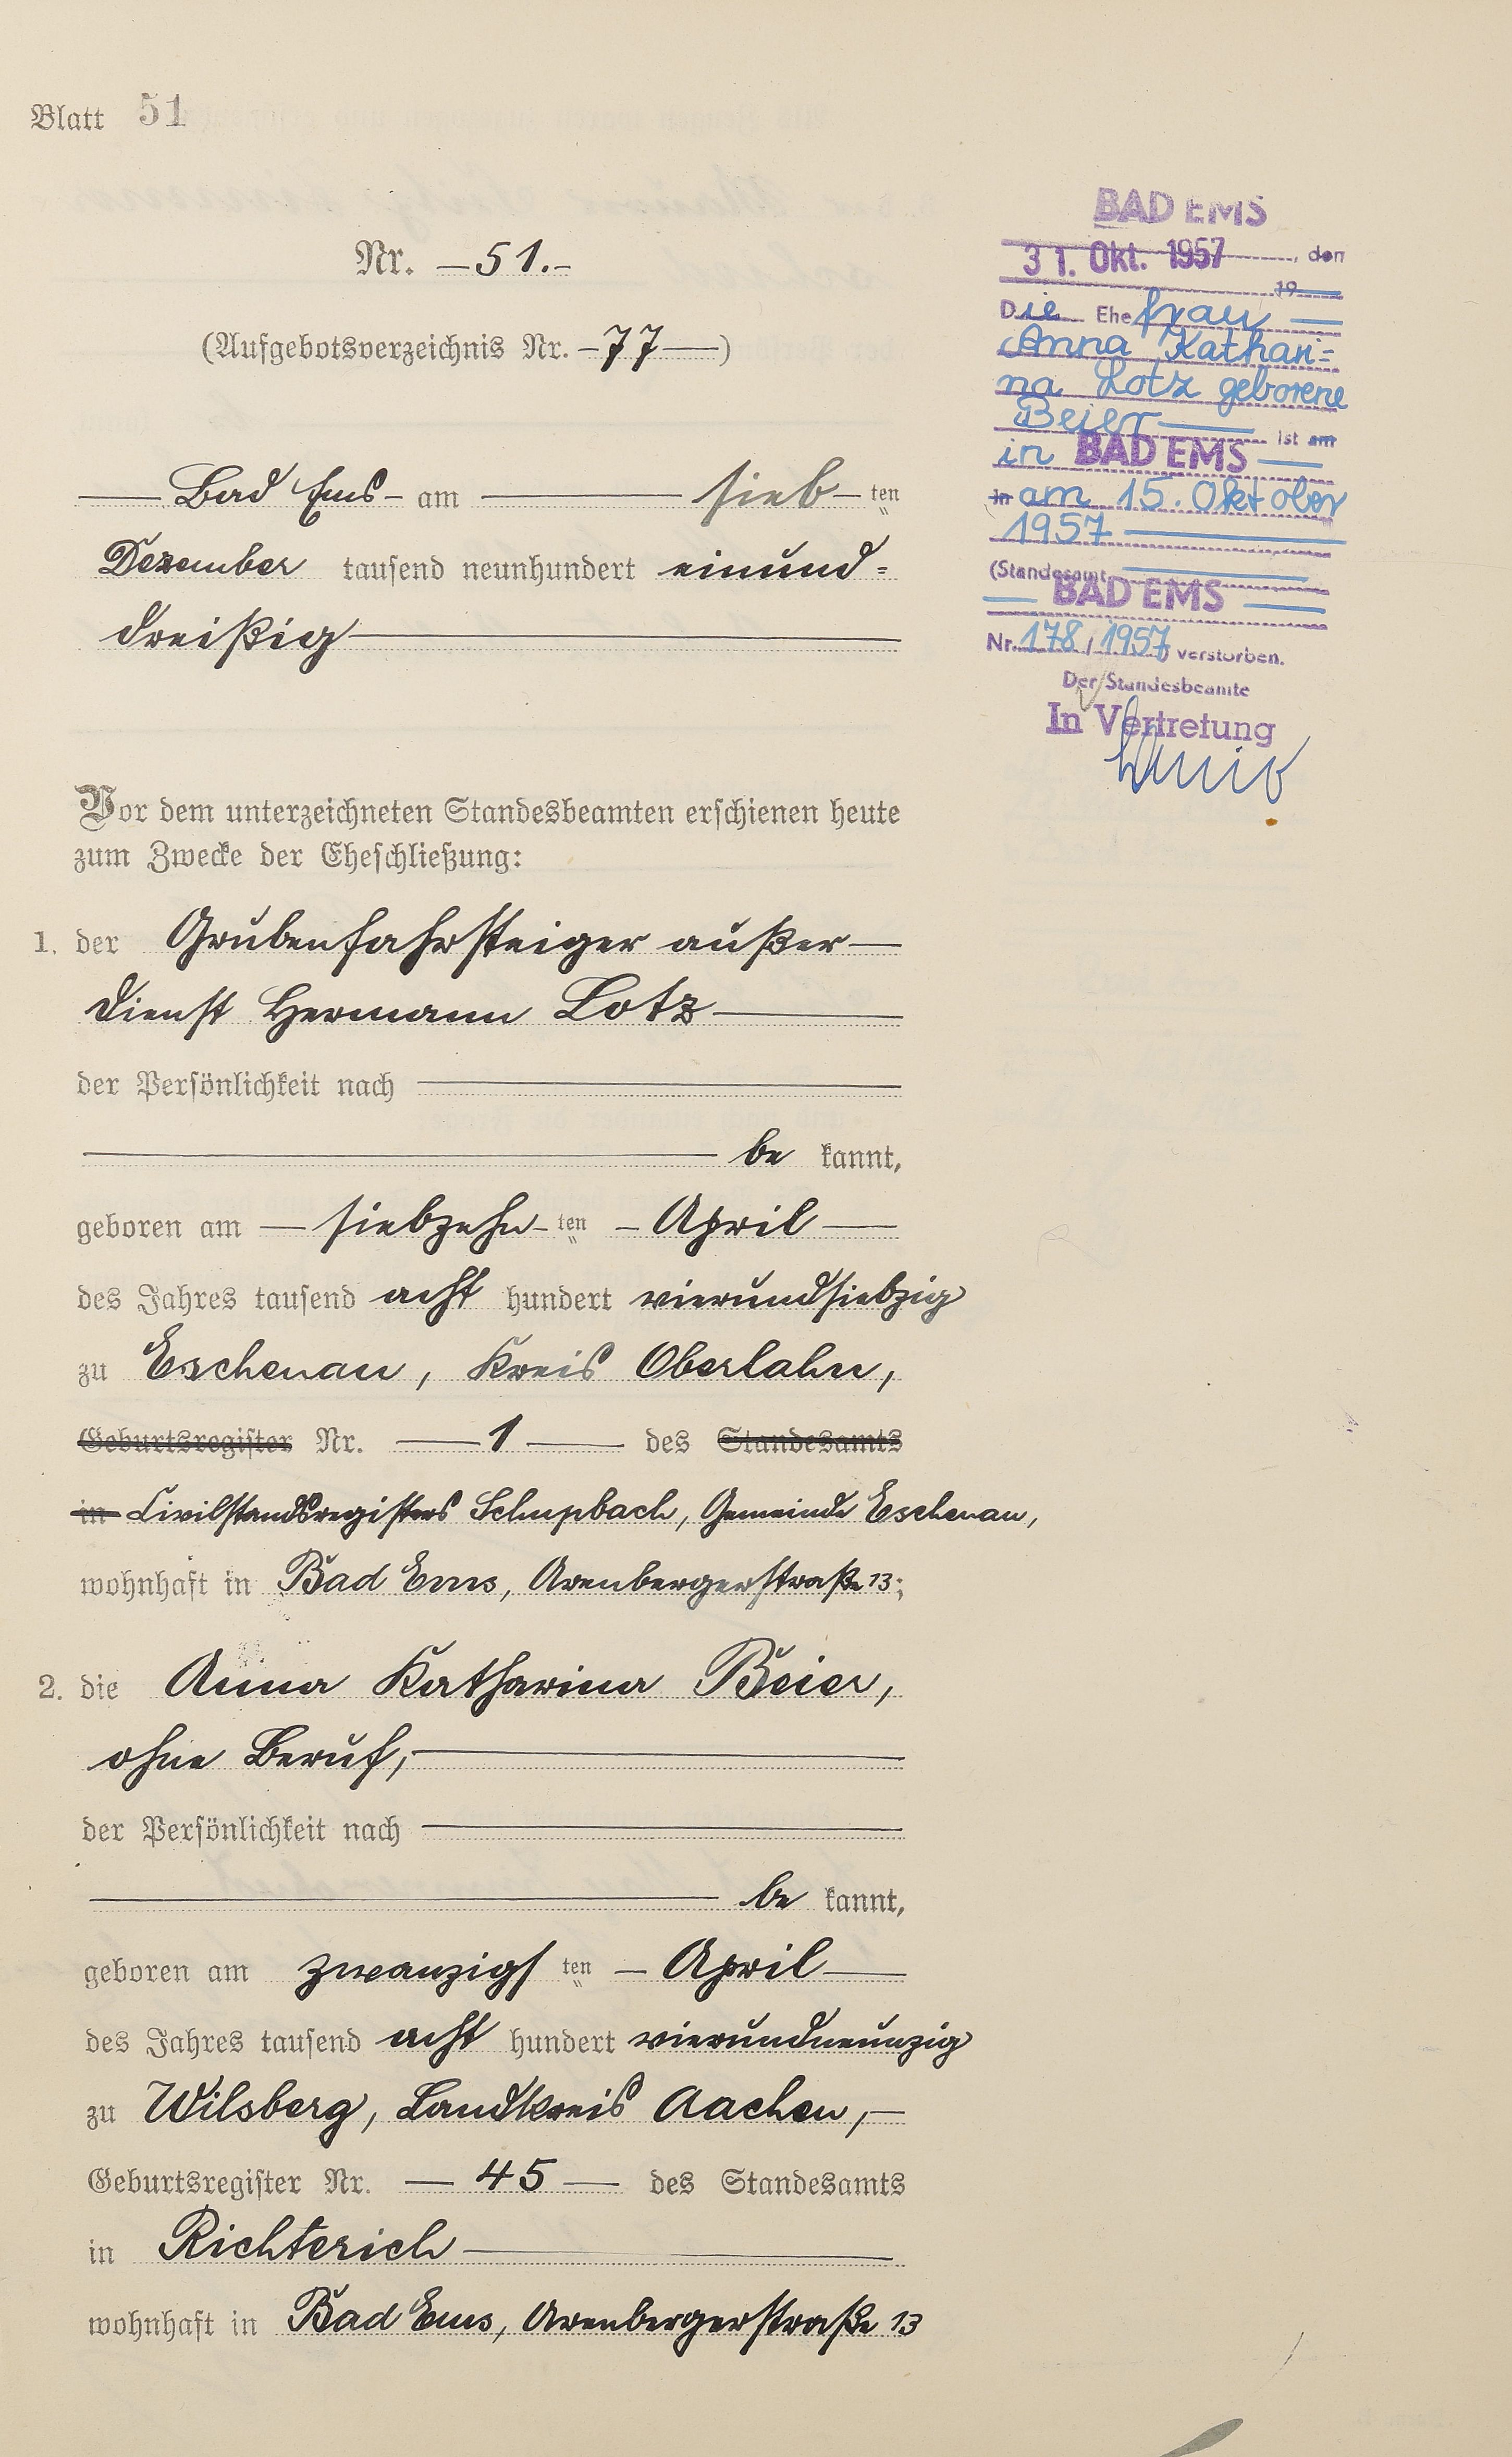 Blatt 51
Nr. —51.—
(Aufgebotsverzeichnis Nr. —77—)
Bad Ems — am — sieb — ten
Dezember tausend neunhundert einund=
dreißig
Vor dem unterzeichneten Standesbeamten erschienen heute
zum Zwecke der Eheschließung:
1. der Grubenfahrsteiger außer
Dienst Hermann Lotz
der Persönlichkeit nach
be kannt,
geboren am — siebzehn — ten — April —
des Jahres tausend acht hundert vierundsiebzig
zu Eschenau, Kreis Oberlahn,
Geburtsregister Nr. — 1 — des Standesamts
in Civilstandsregisters Schupbach, Gemeinde Eschenau,
wohnhaft in Bad Ems, Arenbergerstraße 13;
2. die Anna Katharina Beier,
ohne Beruf,
der Persönlichkeit nach
be kannt,
geboren am zwanzigs ten — April —
des Jahres tausend acht hundert vierundneunzig
zu Wilsberg, Landkreis Aachen, —
Geburtsregister Nr. — 45 — des Standesamts
in Richterich
wohnhaft in Bad Ems, Arenbergerstraße 13
BAD EMS
31. Okt. 1957, den
19
Die Ehefrau
Anna Kathari=
na Lotz geborene
Beier ist am
in BAD EMS
in am 15. Oktober
1957
(Standesamt
BAD EMS
Nr. 178 / 1957) verstorben.
Der Standesbeamte
In Vertretung